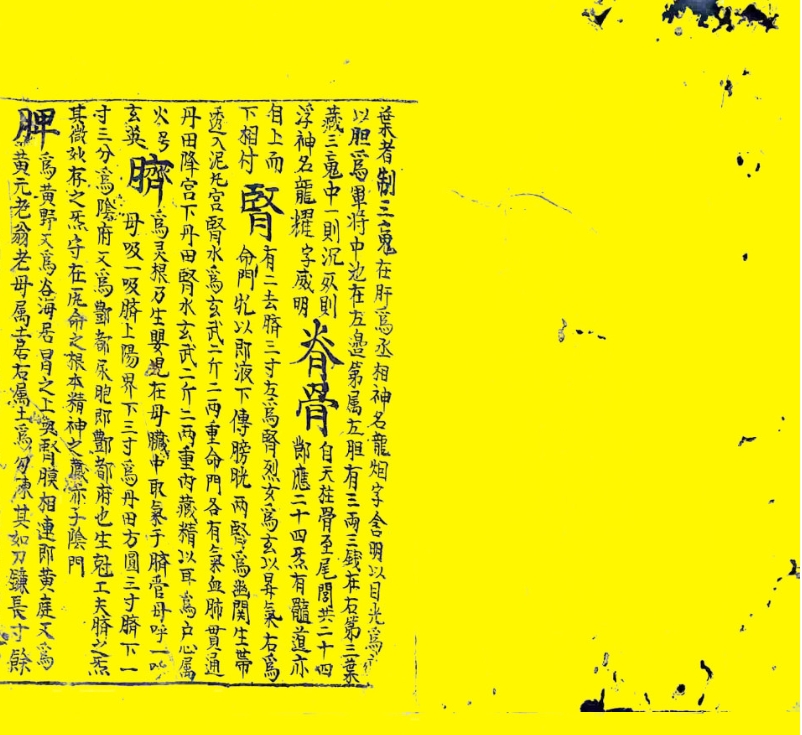 葉者制三䰟在肝爲丞相神名龍烟字含明以目光爲
以胆爲軍将中池在左邉第属左胆有三兩三銭在右第三葉
藏三䰟中一則沉双則
浮神名龍耀字威明
脊骨
自天柱骨至尾閭共二十四
節應二十四炁有髓道亦
自上而
下相付
腎
有二去臍三寸左爲腎烈女爲玄以昇氣右爲
命門牝以即液下傳膀胱兩腎爲幽関生帶
透入泥丸宫腎水爲玄武二斤二兩重命門各有氣血肺貫通
丹田降宫下丹田腎水玄武二斤二兩重内藏精以耳爲户心属
火号
玄英
臍
爲灵根乃生嬰児在母臓中取氣于臍管母呼一呼
母吸一吸臍上陽界下三寸爲丹田方圓三寸臍下一
寸三分爲陰府又爲酆都尿胞即酆都府也生尅工夫臍之炁
其微妙存之炁守在一炁命之根本精神之蔵亦子陰門
脾
爲黄野又爲谷海居胃之上與腎膜相連即黄庭又爲
黄元老翁老母属土居右属土爲匆陳其如刀鐮長寸餘